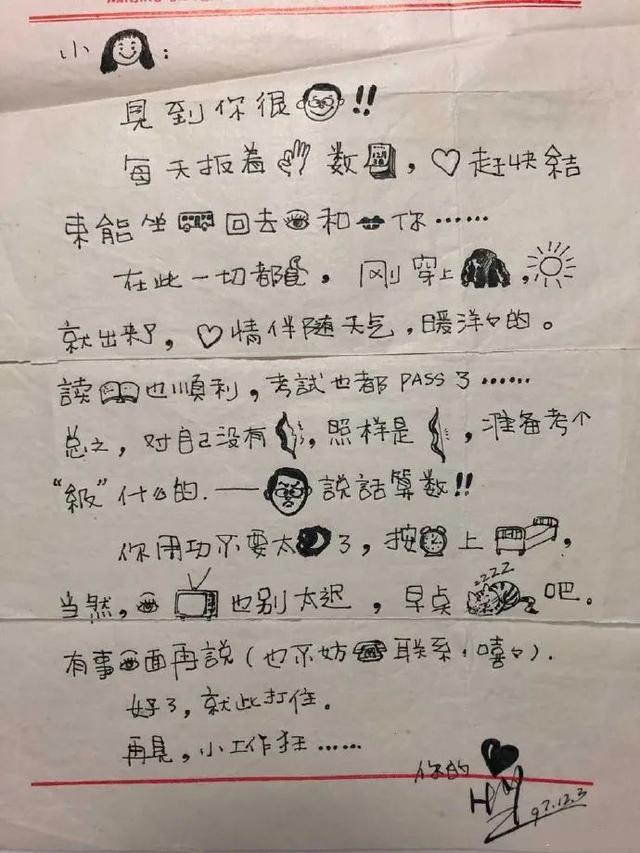 小：
見到你很!!
每天扳着数，♡赶快結
束能坐回去和你……
在此一切都，刚穿上，
就出来了，♡情伴随天气，暖洋々的。
讀也順利，考試也都PASS了……
总之，对自己没有，照样是，准备考个
“級”什么的.——說話算數!!
你用功不要太了，按上，
当然，也别太迟，早点吧。
zzzz
有事面再説(也不妨联系，嘻々).
好了，就此打住。
再見，小工作狂……
你的
97.12.3